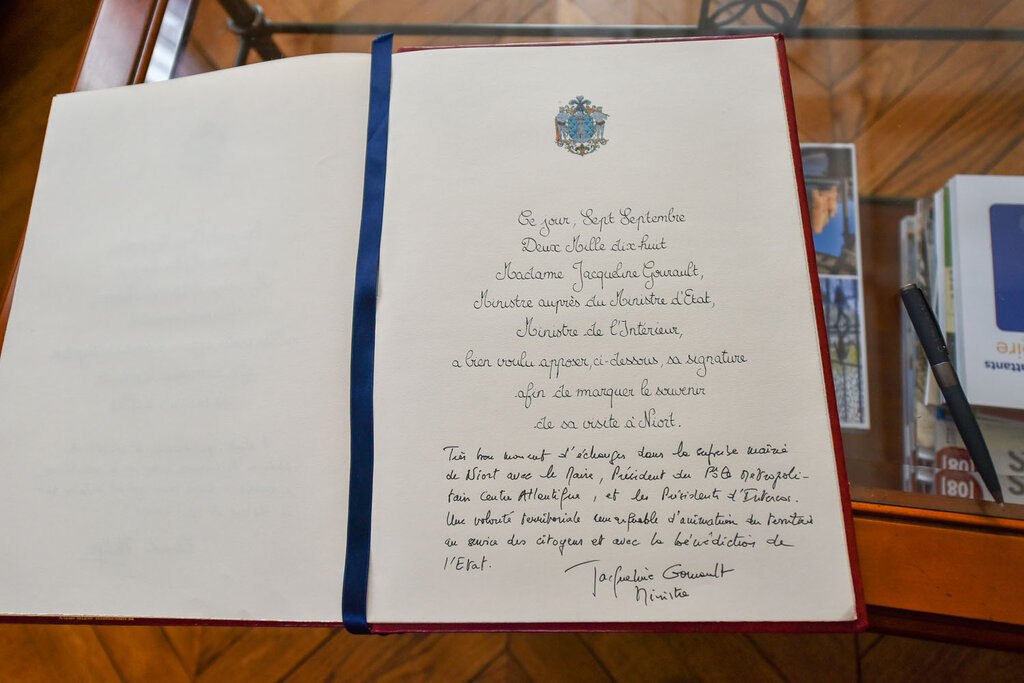 Ce jour, Sept Septembre
Deux Mille dix-huit
Madame Jacqueline Gourault,
Ministre auprès du Ministre d'Etat,
Ministre de l'Intérieur,
a bien voulu apposer, ci-dessous, sa signature
afin de marquer le souvenir
de sa visite à Niort.
Très bon moment d'échanges dans la superbe mairie
de Niort avec le Maire, Président du Métropoli-
tain Centre Atlantique, et les Présidents d'Intercos.
Une volonté territoriale remarquable d'animation du territoire
au service des citoyens et avec la bénédiction de
l'Etat.
Jacqueline Gourault
Ministre
oire
attants
(80)
(80)